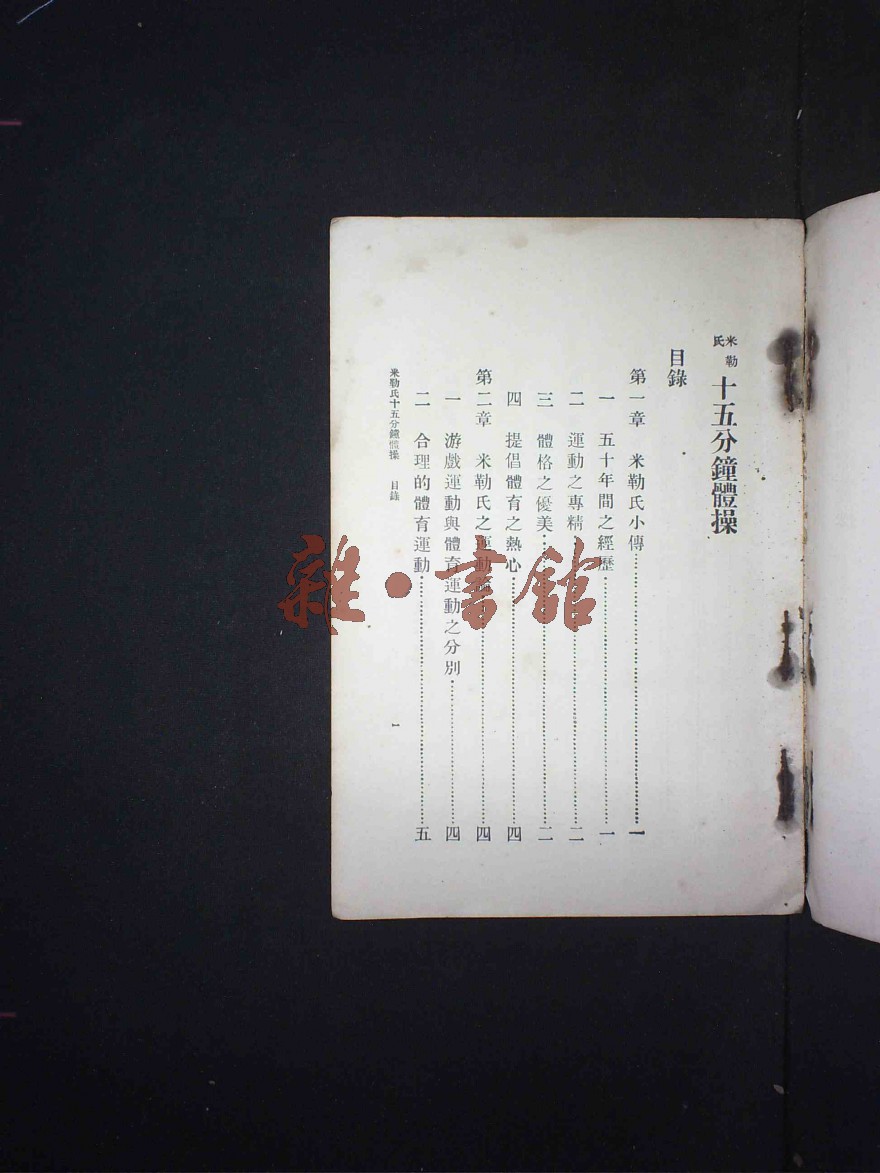 米勒氏十五分鐘體操
目錄
第一章 米勒氏小傳……一
一 五十年間之經歷……一
二 運動之專精……二
三 體格之優美……二
四 提倡體育之熱心……四
第二章 米勒氏之運動……四
一 游戲運動與體育運動之分別……四
二 合理的體育運動……五
米勒氏十五分鐘體操 目錄 一
雜·書館